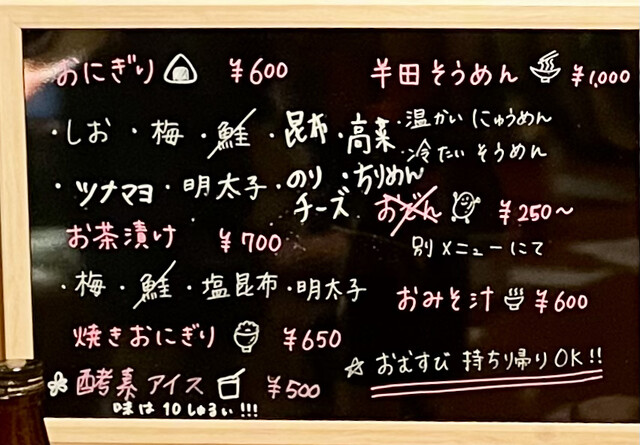 おにぎり ¥600
・しお ・梅 ・鮭 ・昆布 ・高菜
・ツナマヨ ・明太子 ・のりチーズ ・ちりめん
お茶漬け ¥700
・梅 ・鮭 ・塩昆布 ・明太子
焼きおにぎり ¥650
酵素アイス ¥500
味は10しゅるい!!!
半田そうめん ¥1,000
・温かい にゅうめん
・冷たい そうめん
おでん ¥250〜
別メニューにて
おみそ汁 ¥600
☆ おむすび 持ち帰りOK!!